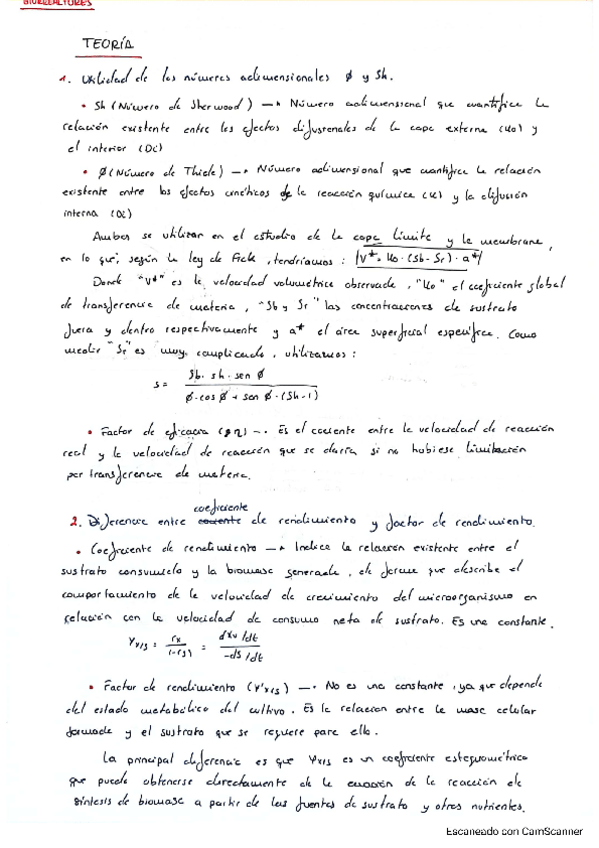 BIORREACTORES
TEORÍA
1. Utilidad de los números adimensionales Ø y Sh.
• Sh (Número de Sherwood) → Número adimensional que cuantifica la
relación existente entre los efectos difusionales de la capa externa (Ko) y
el interior (Di)
• Ø (Número de Thiele) → Número adimensional que cuantifica la relación
existente entre los efectos cinéticos de la reacción química (K) y la difusión
interna (Di)
Ambos se utilizan en el estudio de la capa límite y la membrana,
en lo que, según la ley de Fick, tendríamos: |V* = Ko · (Sb - Sr) · a*|
Donde "V*" es la velocidad volumétrica observada, "Ko" el coeficiente global
de transferencia de materia, "Sb y Sr" las concentraciones de sustrato
fuera y dentro respectivamente y a* el área superficial específica. Como
medir "Sr" es muy complicado, utilizamos:
s = Sb · sh · sen Ø
Ø · cos Ø + sen Ø · (Sh - 1)
• Factor de eficacia → Es el cociente entre la velocidad de reacción
real y la velocidad de reacción que se daría si no hubiese limitación
por transferencia de materia.
coeficiente
2. Diferencia entre cociente de rendimiento y factor de rendimiento.
• Coeficiente de rendimiento → Indica la relación existente entre el
sustrato consumido y la biomasa generada, de forma que describe el
comportamiento de la velocidad de crecimiento del microorganismo en
relación con la velocidad de consumo neta de sustrato. Es una constante.
Yx/s = rx / (-rs) = dXv/dt / -ds/dt
• Factor de rendimiento (Y'x/s) → No es una constante, ya que depende
del estado metabólico del cultivo. Es la relación entre la masa celular
formada y el sustrato que se requiere para ello.
La principal diferencia es que Yx/s es un coeficiente estequiométrico
que puede obtenerse directamente de la ecuación de la reacción de
síntesis de biomasa a partir de las fuentes de sustrato y otros nutrientes.
Escaneado con CamScanner